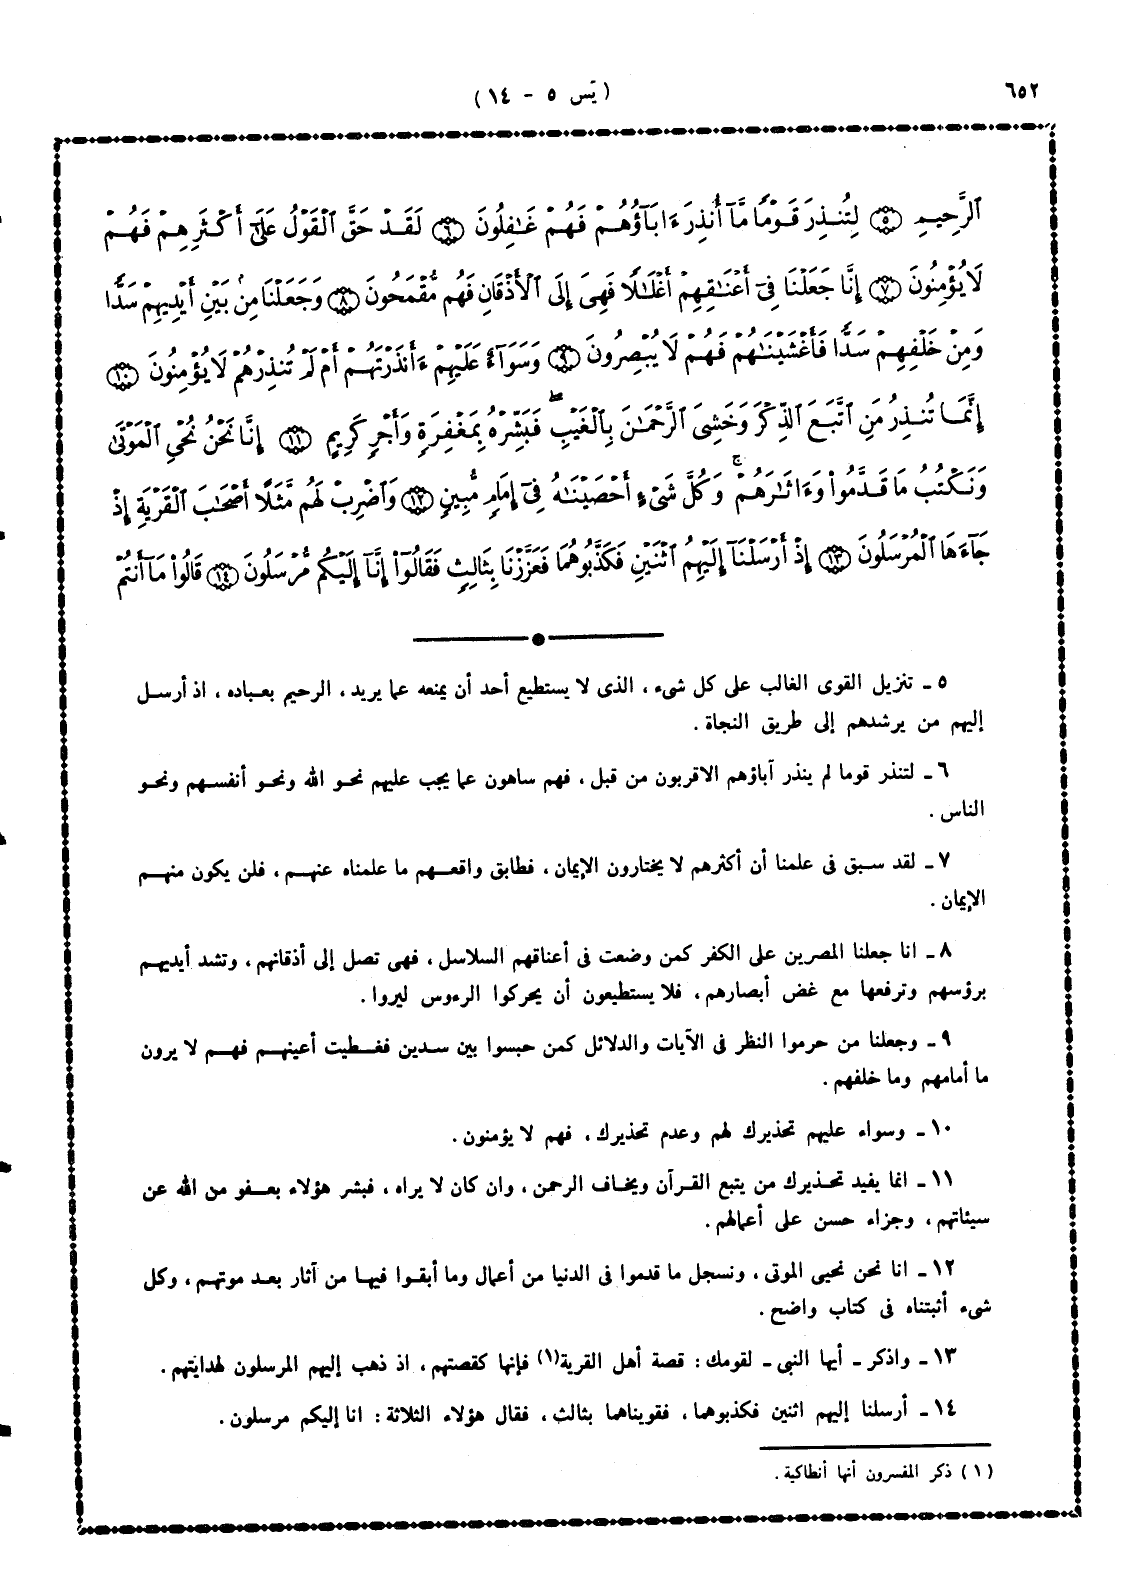 ٦٥٢
( يٓس ٥ - ١٤ )
ٱلرَّحِيمِ ۝٥ لِتُنذِرَ قَوْمًا مَّآ أُنذِرَ ءَابَآؤُهُمْ فَهُمْ غَٰفِلُونَ ۝٦ لَقَدْ حَقَّ ٱلْقَوْلُ عَلَىٰٓ أَكْثَرِهِمْ فَهُمْ
لَا يُؤْمِنُونَ ۝٧ إِنَّا جَعَلْنَا فِىٓ أَعْنَٰقِهِمْ أَغْلَٰلًا فَهِىَ إِلَى ٱلْأَذْقَانِ فَهُم مُّقْمَحُونَ ۝٨ وَجَعَلْنَا مِنۢ بَيْنِ أَيْدِيهِمْ سَدًّا
وَمِنْ خَلْفِهِمْ سَدًّا فَأَغْشَيْنَٰهُمْ فَهُمْ لَا يُبْصِرُونَ ۝٩ وَسَوَآءٌ عَلَيْهِمْ ءَأَنذَرْتَهُمْ أَمْ لَمْ تُنذِرْهُمْ لَا يُؤْمِنُونَ ۝١٠
إِنَّمَا تُنذِرُ مَنِ ٱتَّبَعَ ٱلذِّكْرَ وَخَشِىَ ٱلرَّحْمَٰنَ بِٱلْغَيْبِۖ فَبَشِّرْهُ بِمَغْفِرَةٍ وَأَجْرٍ كَرِيمٍ ۝١١ إِنَّا نَحْنُ نُحْىِ ٱلْمَوْتَىٰ
وَنَكْتُبُ مَا قَدَّمُوا۟ وَءَاثَٰرَهُمْۚ وَكُلَّ شَىْءٍ أَحْصَيْنَٰهُ فِىٓ إِمَامٍ مُّبِينٍ ۝١٢ وَٱضْرِبْ لَهُم مَّثَلًا أَصْحَٰبَ ٱلْقَرْيَةِ إِذْ
جَآءَهَا ٱلْمُرْسَلُونَ ۝١٣ إِذْ أَرْسَلْنَآ إِلَيْهِمُ ٱثْنَيْنِ فَكَذَّبُوهُمَا فَعَزَّزْنَا بِثَالِثٍ فَقَالُوٓا۟ إِنَّآ إِلَيْكُم مُّرْسَلُونَ ۝١٤ قَالُوا۟ مَآ أَنتُمْ
٥ - تنزيل القوى الغالب على كل شىء ، الذى لا يستطيع أحد أن يمنعه عما يريد ، الرحيم بعباده ، اذ أرسل
إليهم من يرشدهم إلى طريق النجاة .
٦ - لتنذر قوما لم ينذر آباؤهم الاقربون من قبل ، فهم ساهون عما يجب عليهم نحو الله ونحو أنفسهم ونحو
الناس .
٧ - لقد سبق فى علمنا أن أكثرهم لا يختارون الإيمان ، فطابق واقعهم ما علمناه عنهم ، فلن يكون منهم
الإيمان .
٨ - انا جعلنا المصرين على الكفر كمن وضعت فى أعناقهم السلاسل ، فهى تصل إلى أذقانهم ، وتشد أيديهم
برؤسهم وترفعها مع غض أبصارهم ، فلا يستطيعون أن يحركوا الرءوس ليروا .
٩ - وجعلنا من حرموا النظر فى الآيات والدلائل كمن حبسوا بين سدين فغطيت أعينهم فهم لا يرون
ما أمامهم وما خلفهم .
١٠ - وسواء عليهم تحذيرك لهم وعدم تحذيرك ، فهم لا يؤمنون .
١١ - انما يفيد تحذيرك من يتبع القرآن ويخاف الرحمن ، وان كان لا يراه ، فبشر هؤلاء بعفو من الله عن
سيئاتهم ، وجزاء حسن على أعمالهم .
١٢ - انا نحن نحيى الموتى ، ونسجل ما قدموا فى الدنيا من أعمال وما أبقوا فيها من آثار بعد موتهم ، وكل
شىء أثبتناه فى كتاب واضح .
١٣ - واذكر - أيها النبى - لقومك : قصة أهل القرية(١) فإنها كقصتهم ، اذ ذهب إليهم المرسلون لهدايتهم .
١٤ - أرسلنا إليهم اثنين فكذبوهما ، فقويناهما بثالث ، فقال هؤلاء الثلاثة : انا إليكم مرسلون .
(١) ذكر المفسرون أنها أنطاكية .